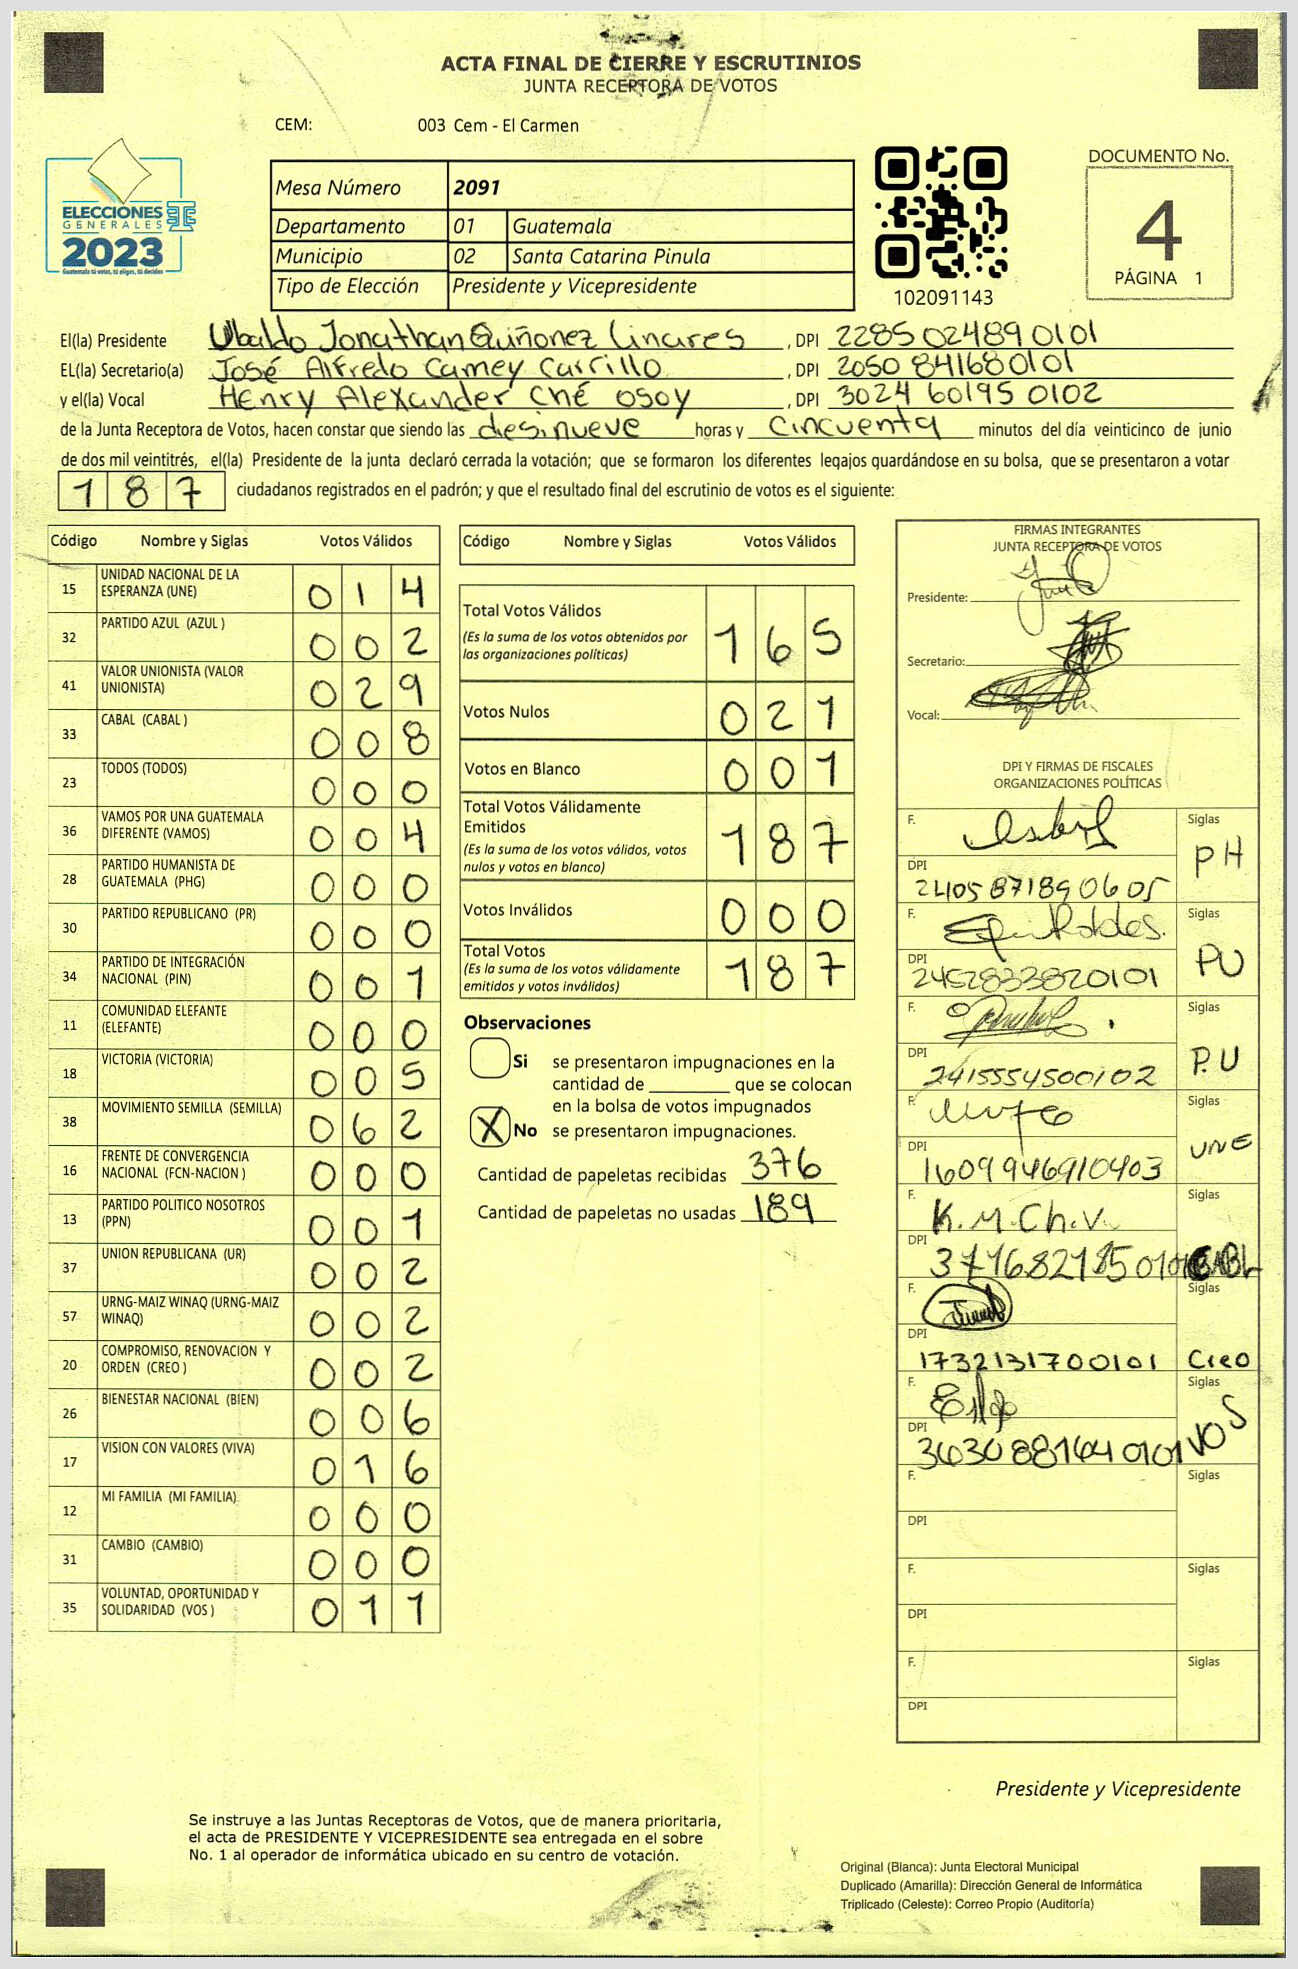 ACTA FINAL DE CIERRE Y ESCRUTINIOS
JUNTA RECEPTORA DE VOTOS
CEM: 003 Cem - El Carmen
ELECCIONES
GENERALES
2023
Guatemala tú votas, tú eliges, tú decides
Mesa Número 2091
Departamento 01 Guatemala
Municipio 02 Santa Catarina Pinula
Tipo de Elección Presidente y Vicepresidente
102091143
DOCUMENTO No.
4
PÁGINA 1
El(la) Presidente Ubaldo Jonathan Quiñonez Linares, DPI 2285024890101
EL(la) Secretario(a) José Alfredo Camey Carrillo, DPI 2050841680101
y el(la) Vocal Henry Alexander Ché Osoy, DPI 3024601950102
de la Junta Receptora de Votos, hacen constar que siendo las diesinueve horas y cincuenta minutos del día veinticinco de junio
de dos mil veintitrés, el(la) Presidente de la junta declaró cerrada la votación; que se formaron los diferentes legajos guardándose en su bolsa, que se presentaron a votar
187 ciudadanos registrados en el padrón; y que el resultado final del escrutinio de votos es el siguiente:
Código Nombre y Siglas Votos Válidos
15 UNIDAD NACIONAL DE LA
ESPERANZA (UNE) 014
32 PARTIDO AZUL (AZUL ) 002
41 VALOR UNIONISTA (VALOR
UNIONISTA) 029
33 CABAL (CABAL ) 008
23 TODOS (TODOS) 000
36 VAMOS POR UNA GUATEMALA
DIFERENTE (VAMOS) 004
28 PARTIDO HUMANISTA DE
GUATEMALA (PHG) 000
30 PARTIDO REPUBLICANO (PR) 000
34 PARTIDO DE INTEGRACIÓN
NACIONAL (PIN) 001
11 COMUNIDAD ELEFANTE
(ELEFANTE) 000
18 VICTORIA (VICTORIA) 005
38 MOVIMIENTO SEMILLA (SEMILLA) 062
16 FRENTE DE CONVERGENCIA
NACIONAL (FCN-NACION ) 000
13 PARTIDO POLITICO NOSOTROS
(PPN) 001
37 UNION REPUBLICANA (UR) 002
57 URNG-MAIZ WINAQ (URNG-MAIZ
WINAQ) 002
20 COMPROMISO, RENOVACION Y
ORDEN (CREO ) 002
26 BIENESTAR NACIONAL (BIEN) 006
17 VISION CON VALORES (VIVA) 016
12 MI FAMILIA (MI FAMILIA) 000
31 CAMBIO (CAMBIO) 000
35 VOLUNTAD, OPORTUNIDAD Y
SOLIDARIDAD (VOS ) 011
Código Nombre y Siglas Votos Válidos
Total Votos Válidos 165
(Es la suma de los votos obtenidos por
las organizaciones políticas)
Votos Nulos 021
Votos en Blanco 001
Total Votos Válidamente
Emitidos 187
(Es la suma de los votos válidos, votos
nulos y votos en blanco)
Votos Inválidos 000
Total Votos 187
(Es la suma de los votos válidamente
emitidos y votos inválidos)
Observaciones
Si se presentaron impugnaciones en la
cantidad de ________ que se colocan
en la bolsa de votos impugnados
X No se presentaron impugnaciones.
Cantidad de papeletas recibidas 376
Cantidad de papeletas no usadas 189
FIRMAS INTEGRANTES
JUNTA RECEPTORA DE VOTOS
Presidente:
Secretario:
Vocal:
DPI Y FIRMAS DE FISCALES
ORGANIZACIONES POLÍTICAS
F. Siglas
PH
DPI
2405871890605
F. Siglas
PU
DPI
2452833820101
F. Siglas
P.U
DPI
2415554500102
F. Siglas
UNE
DPI
1609946910403
F. K.M.Ch.V. Siglas
DPI
CABL
F. Siglas
DPI
1732131700101 Creo
F. Siglas
VOS
DPI
3030881640101
F. Siglas
DPI
F. Siglas
DPI
F. Siglas
DPI
Presidente y Vicepresidente
Se instruye a las Juntas Receptoras de Votos, que de manera prioritaria,
el acta de PRESIDENTE Y VICEPRESIDENTE sea entregada en el sobre
No. 1 al operador de informática ubicado en su centro de votación.
Original (Blanca): Junta Electoral Municipal
Duplicado (Amarilla): Dirección General de Informática
Triplicado (Celeste): Correo Propio (Auditoría)